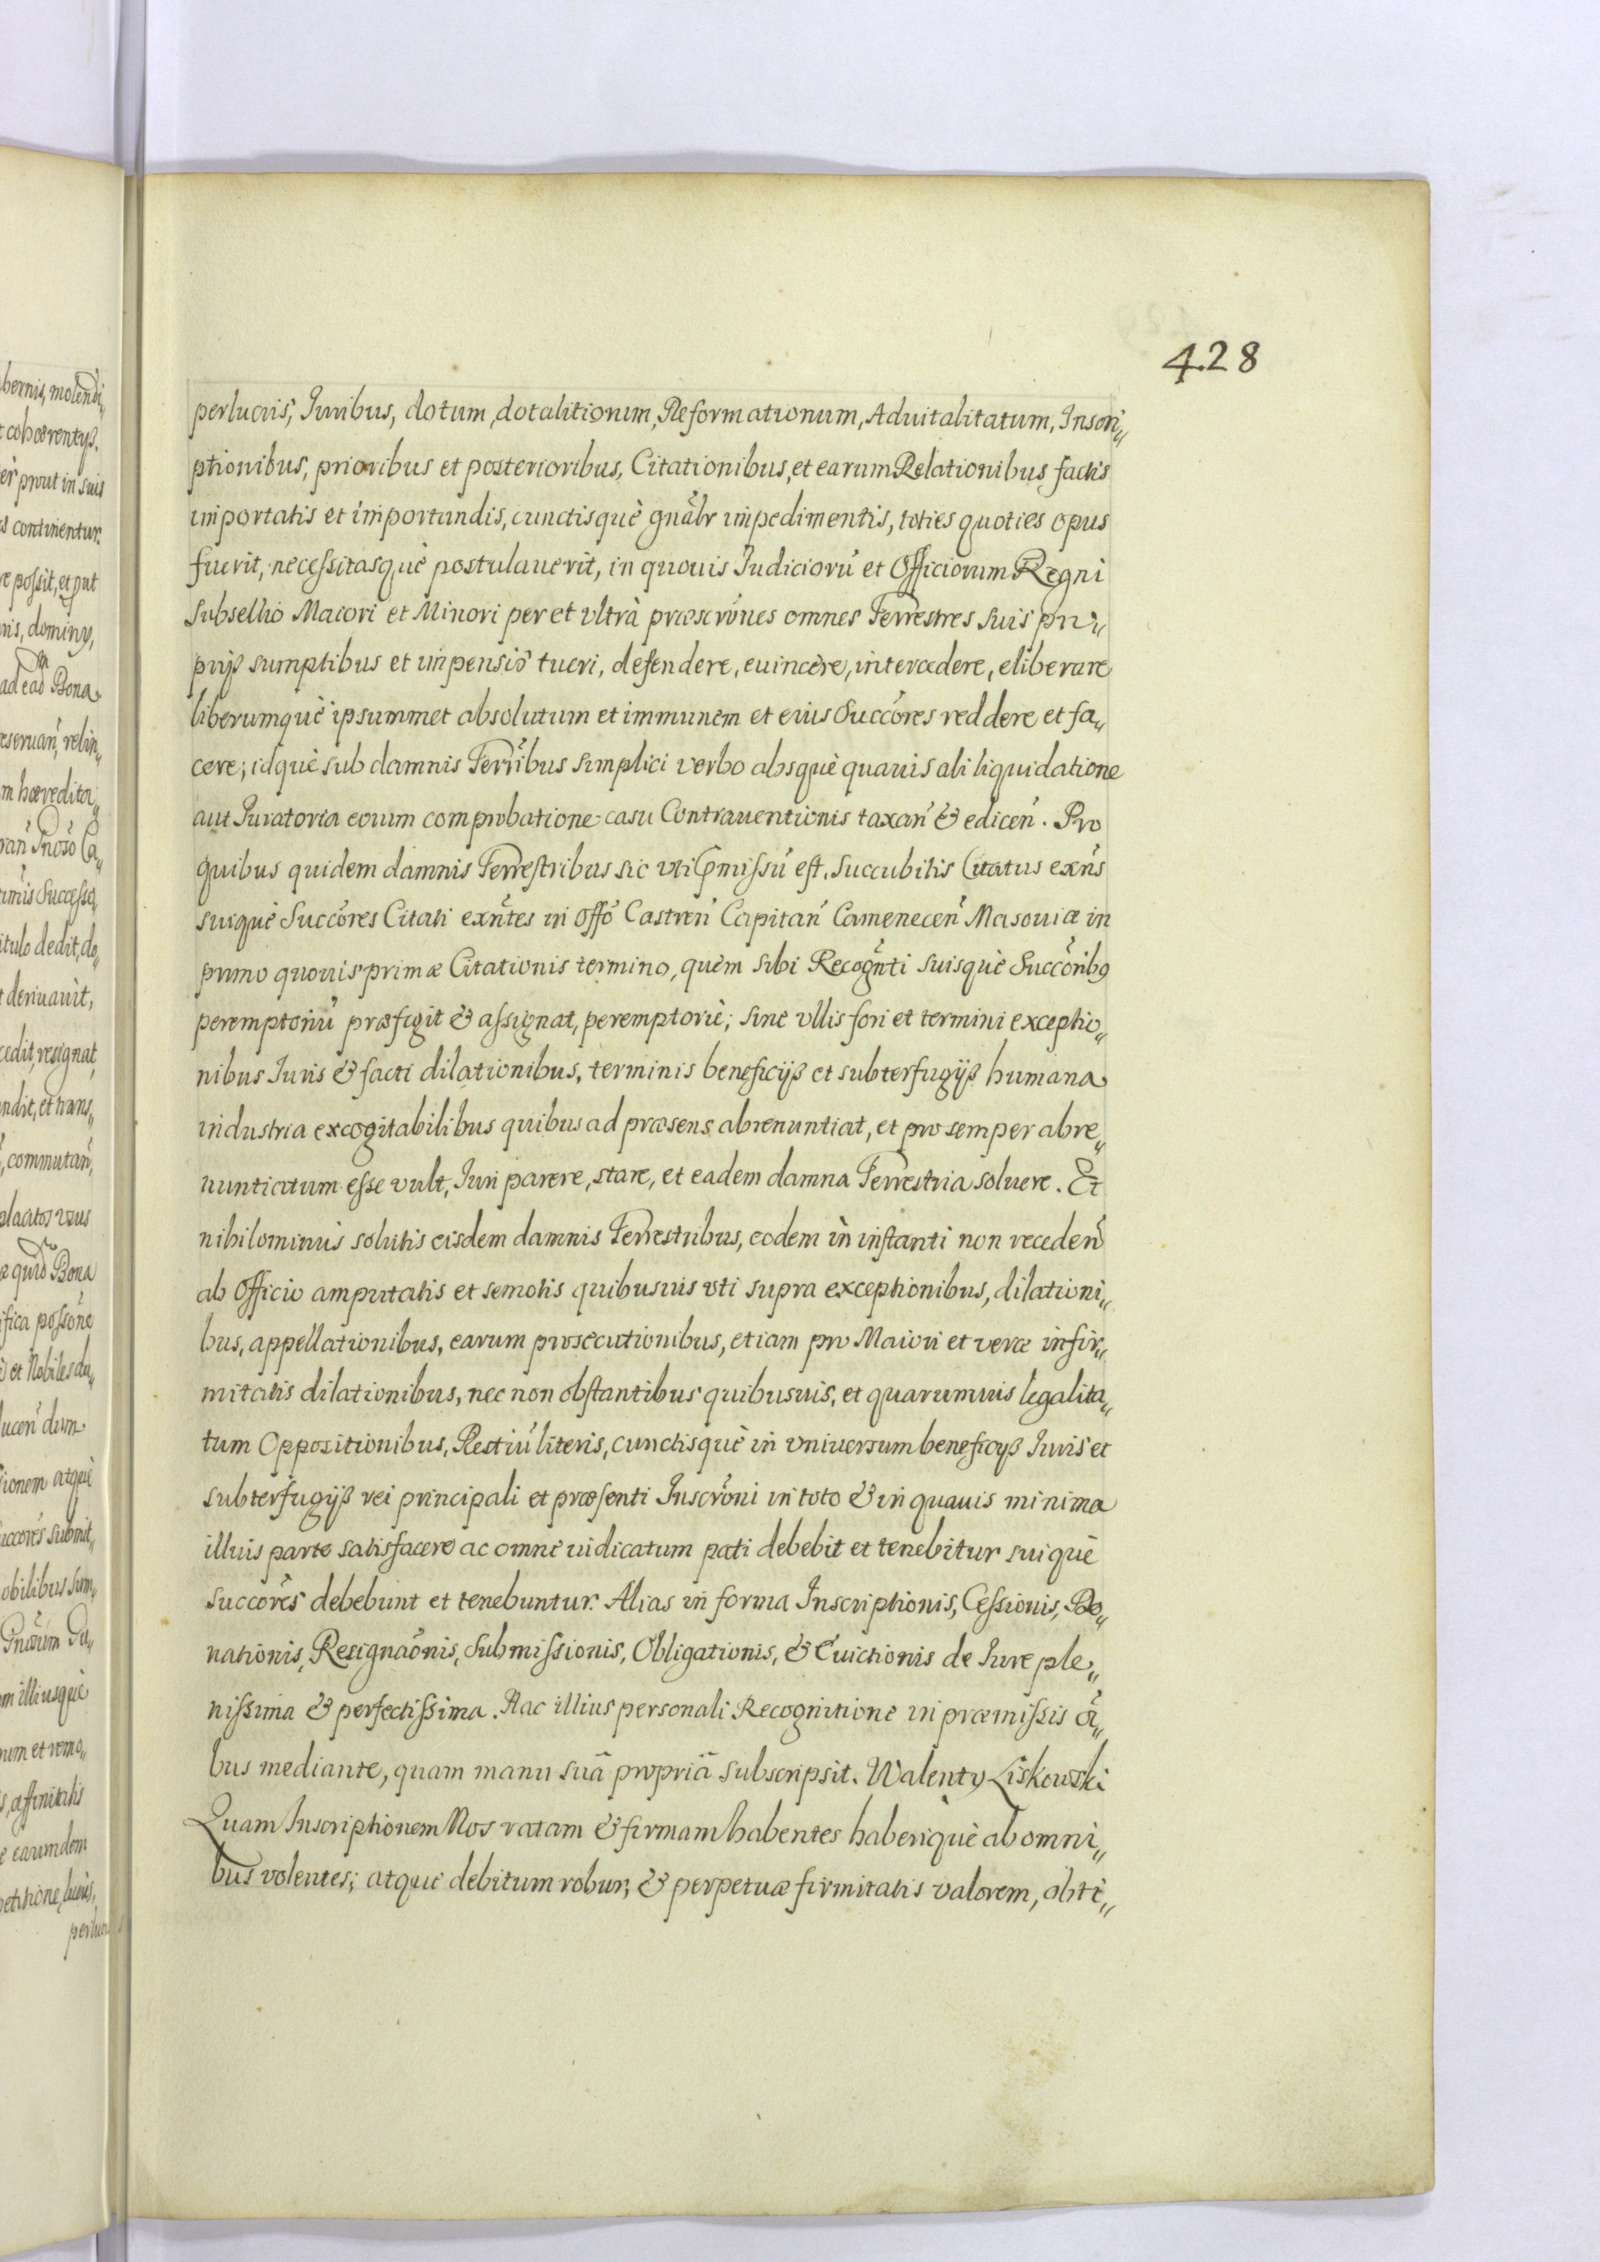 428
perlucris, Iuribus, dotum, dotalitionum, Reformationum, Aduitalitatum, Inscri„
ptionibus, prioribus et posterioribus, Citationibus, et earum Relationibus factis
importatis et importandis, cunctisquè gnãlr impedimentis, toties quoties opus
fuerit, necessitasquè postulauerit, in quouis Iudiciorũ et Officiorum Regni
Subsellio Maiori et Minori per et vltrà præscrõnes omnes Terrestres suis pro„
prijs sumptibus et impensis tueri, defendere, euincere, intercedere, eliberare
liberumquè ipsummet absolutum et immunem et eius Succõres reddere et fa„
cere; idquè sub damnis Terr̃ibus simplici verbo absquè quauis ali liquidatione
aut Iuratoria eorum comprobatione casu Contrauentionis taxañ & ediceñ. Pro
quibus quidem damnis Terrestribus sic vti p̃missũ est, succubitis Citatus exñs
suiquè Succõres Citati exñtes in Offõ Castreñ Capitañ Cameneceñ Masouiæ in
primo quouis primæ Citationis termino, quem sibi Recogñti suisquè Succõribꝯ
peremptoriũ præfigit & assignat, peremptoriè; sine vllis fori et termini exceptio„
nibus Iuris & facti dilationibus, terminis beneficijs et subterfugijs humana
industria excogitabilibus quibus ad præsens abrenuntiat, et pro semper abre„
nuntiatum esse vult, Iuri parere, stare, et eadem damna Terrestria soluere. Et
nihilominus solutis eisdem damnis Terrestribus, eodem in instanti non recedeñ
ab Officio amputatis et semotis quibusuis vti supra exceptionibus, dilationi„
bus, appellationibus, earum prosecutionibus, etiam pro Maiori et veræ infir„
mitatis dilationibus, nec non obstantibus quibusuis, et quarumuis legalita„
tum Oppositionibus, Restiũ literis, cunctisquè in vniuersum beneficijs Iuris et
subterfugijs rei principali et præsenti Inscrõni in toto & in quauis minima
illius parte satisfacere ac omne iudicatum pati debebit et tenebitur suiquè
succores debebunt et tenebuntur. Alias in forma Inscriptionis, Cessionis, Do„
nationis, Resignaõnis, Submissionis, Obligationis, & Euictionis de Iure ple„
nissima & perfectissima. Hac illius personali Recognitione in præmissis õi„
bus mediante, quam manu suã propriã subscripsit. Walenty Liskowski
Quam Inscriptionem Nos ratam & firmam habentes haberiquè ab omni„
bus volentes; atque debitum robur, & perpetuæ firmitatis valorem, obti„